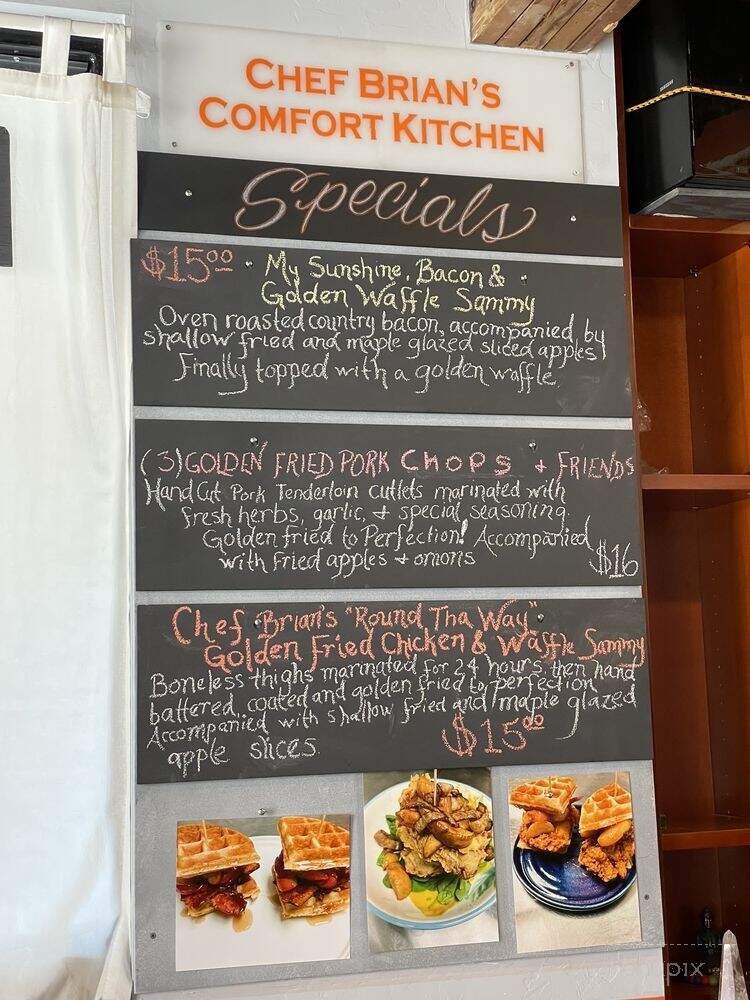 CHEF BRIAN'S
COMFORT KITCHEN
Specials
$15⁰⁰ My Sunshine, Bacon &
Golden Waffle Sammy
Oven roasted country bacon, accompanied by
shallow fried and maple glazed sliced apples
Finally topped with a golden waffle.
(3) GOLDEN FRIED PORK CHOPS + FRIENDS
Hand Cut Pork Tenderloin cutlets marinated with
fresh herbs, garlic, + special seasoning.
Golden fried to Perfection! Accompanied
with fried apples + onions $16
Chef Brian's "Round Tha Way"
Golden Fried Chicken & Waffle Sammy
Boneless thighs marinated for 24 hours, then hand
battered, coated and golden fried to perfection
Accompanied with shallow fried and maple glazed
apple slices. $15⁰⁰